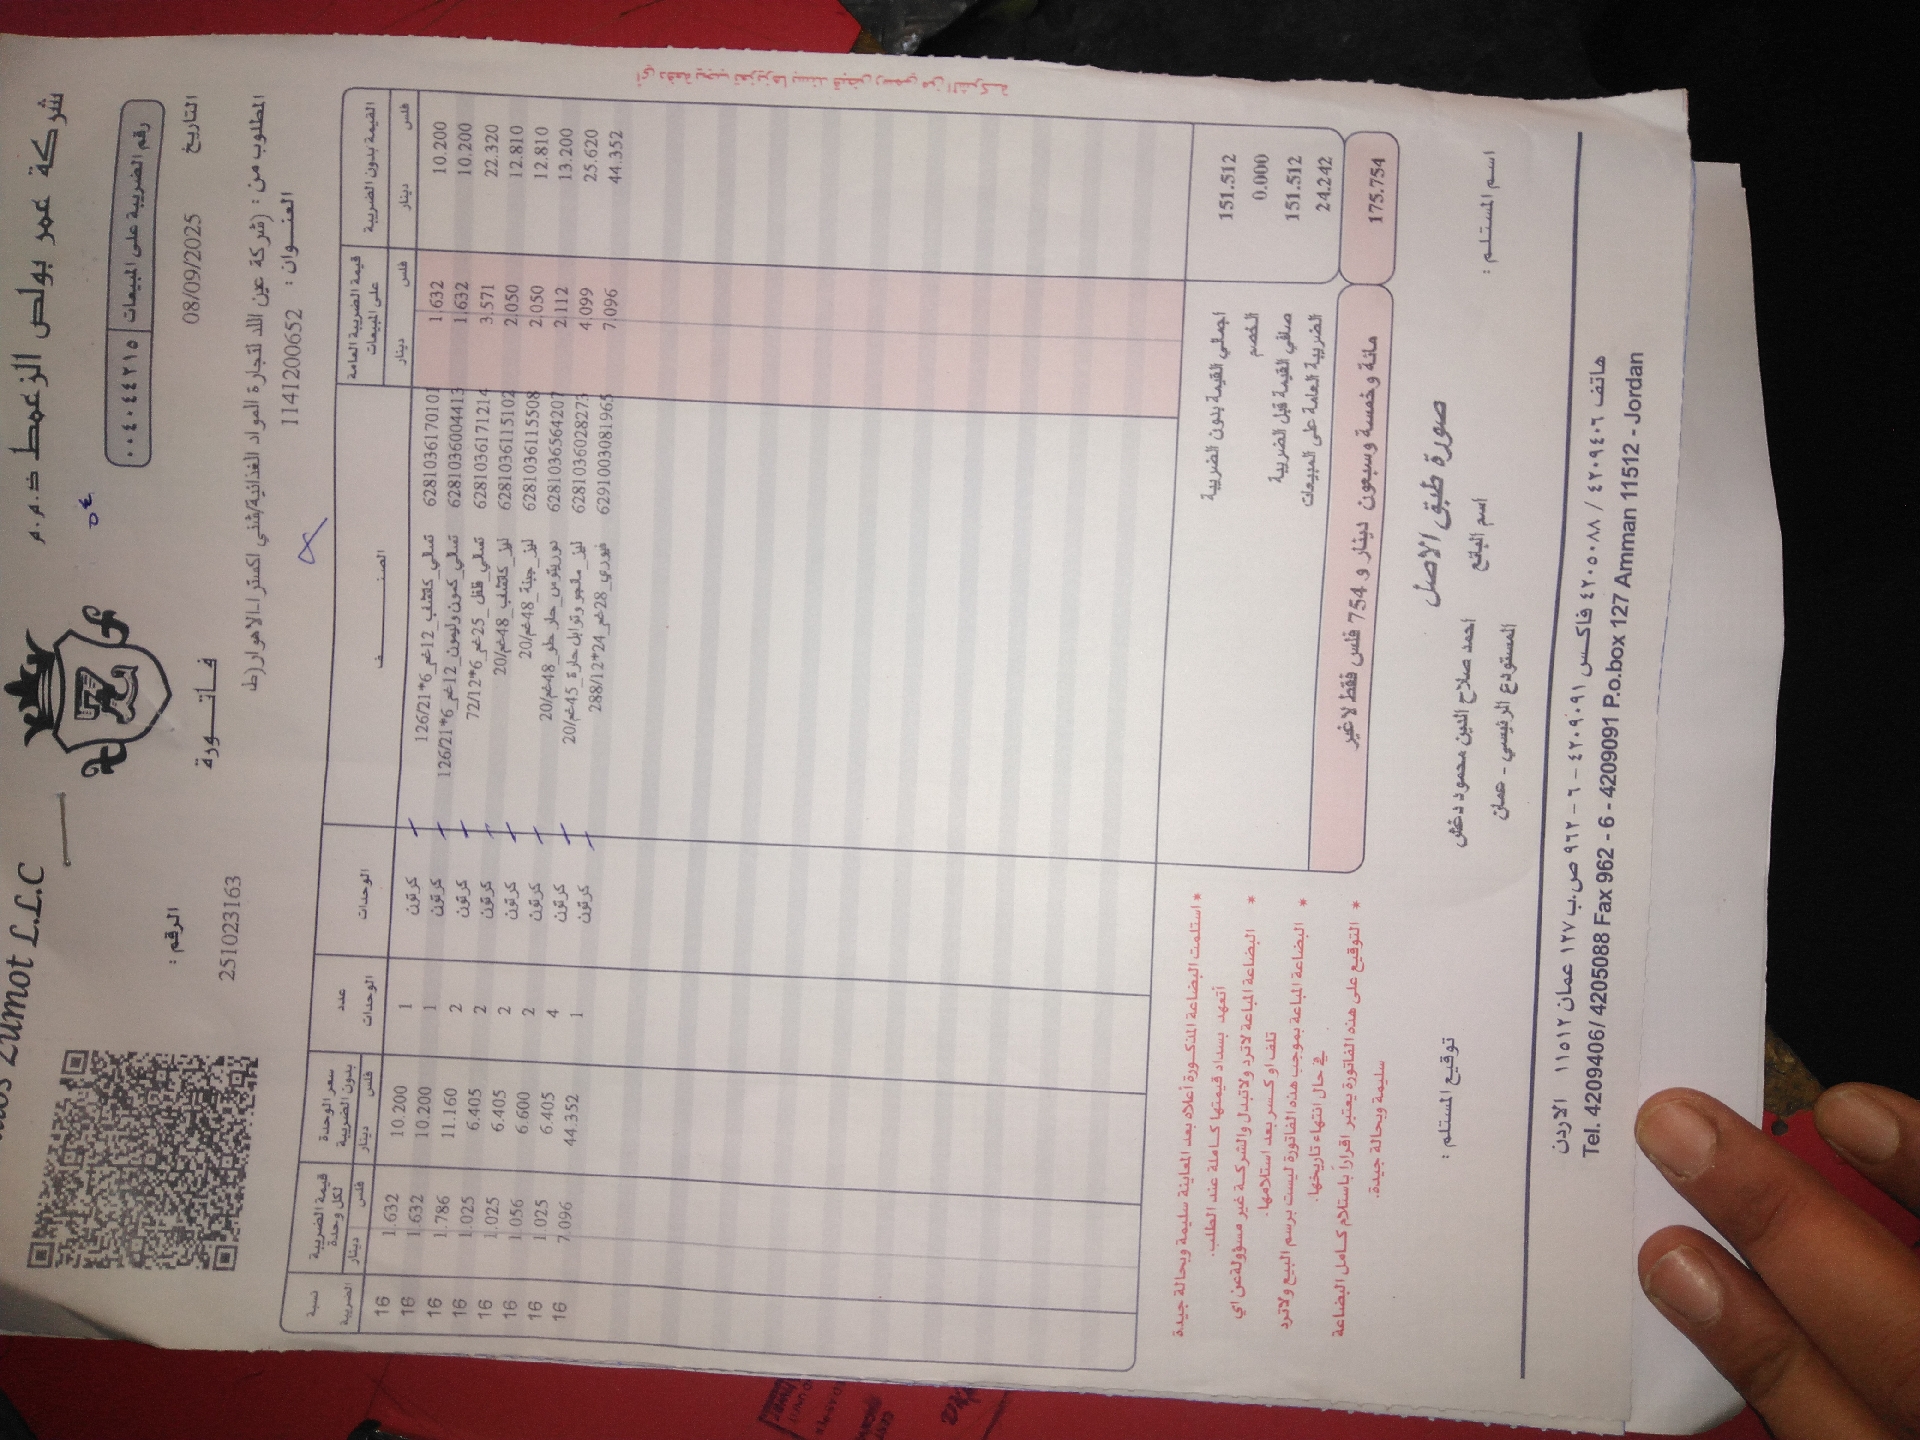 شركة عمر بولص الزعمط ذ.م.م
Zumot L.L.C
رقم الضريبة على المبيعات ٠٠٤٠٤٤٢١٥
التاريخ 08/09/2025
فاتورة
الرقم :
251023163
المطلوب من : (شركة عين اللد لتجارة المواد الغذائية/شني اكسترا-الاهوار(ط
العنوان : 1141200652
القيمة بدون الضريبة قيمة الضريبة العامة على المبيعات الصنف الوحدات عدد الوحدات سعر الوحدة بدون الضريبة قيمة الضريبة لكل وحدة نسبة الضريبة
فلس دينار فلس دينار فلس دينار فلس دينار
10.200 1.632 6281036170101 تسالي_كاتشب_12غم_6*126/21 كرتون 1 10.200 1.632 16
10.200 1.632 6281036004413 تسالي_كمون وليمون_12غم_6*126/21 كرتون 1 10.200 1.632 16
22.320 3.571 6281036171214 تسالي_فلفل_25غم_6*72/12 كرتون 2 11.160 1.786 16
12.810 2.050 6281036115102 ليز_كاتشب_48غم/20 كرتون 2 6.405 1.025 16
12.810 2.050 6281036115508 ليز_جبنة_48غم/20 كرتون 2 6.405 1.025 16
13.200 2.112 6281036564207 دوريتوس_حار حلو_48غم/20 كرتون 2 6.600 1.056 16
25.620 4.099 6281036028273 ليز_مانجو وتوابل حارة_45غم/20 كرتون 4 6.405 1.025 16
44.352 7.096 6291003081965 28غم_24*288/12 كرتون 1 44.352 7.096 16
اجمالي القيمة بدون الضريبة 151.512
الخصم 0.000
صافي القيمة قبل الضريبة 151.512
الضريبة العامة على المبيعات 24.242
مائة وخمسة وسبعون دينار و 754 فلس فقط لا غير 175.754
* استلمت البضاعة المذكورة أعلاه بعد المعاينة سليمة وبحالة جيدة
أتعهد بسداد قيمتها كاملة عند الطلب.
* البضاعة المباعة لا ترد ولا تبدل والشركة غير مسؤولة عن اي
تلف او كسر بعد استلامها.
* البضاعة المباعة بموجب هذه الفاتورة ليست برسم البيع ولا ترد
في حال انتهاء تاريخها.
* التوقيع على هذه الفاتورة يعتبر اقراراً باستلام كامل البضاعة
سليمة وبحالة جيدة.
صورة طبق الاصل
اسم المستلم :
اسم البائع احمد صلاح الدين محمود دخش
توقيع المستلم :
المستودع الرئيسي - عمان
هاتف ٤٢٠٩٤٠٦ / ٤٢٠٥٠٨٨ فاكس ٤٢٠٩٠٩١ - ٦ - ٩٦٢ ص.ب ١٢٧ عمان ١١٥١٢ الاردن
Tel. 4209406/ 4205088 Fax 962 - 6 - 4209091 P.o.box 127 Amman 11512 - Jordan